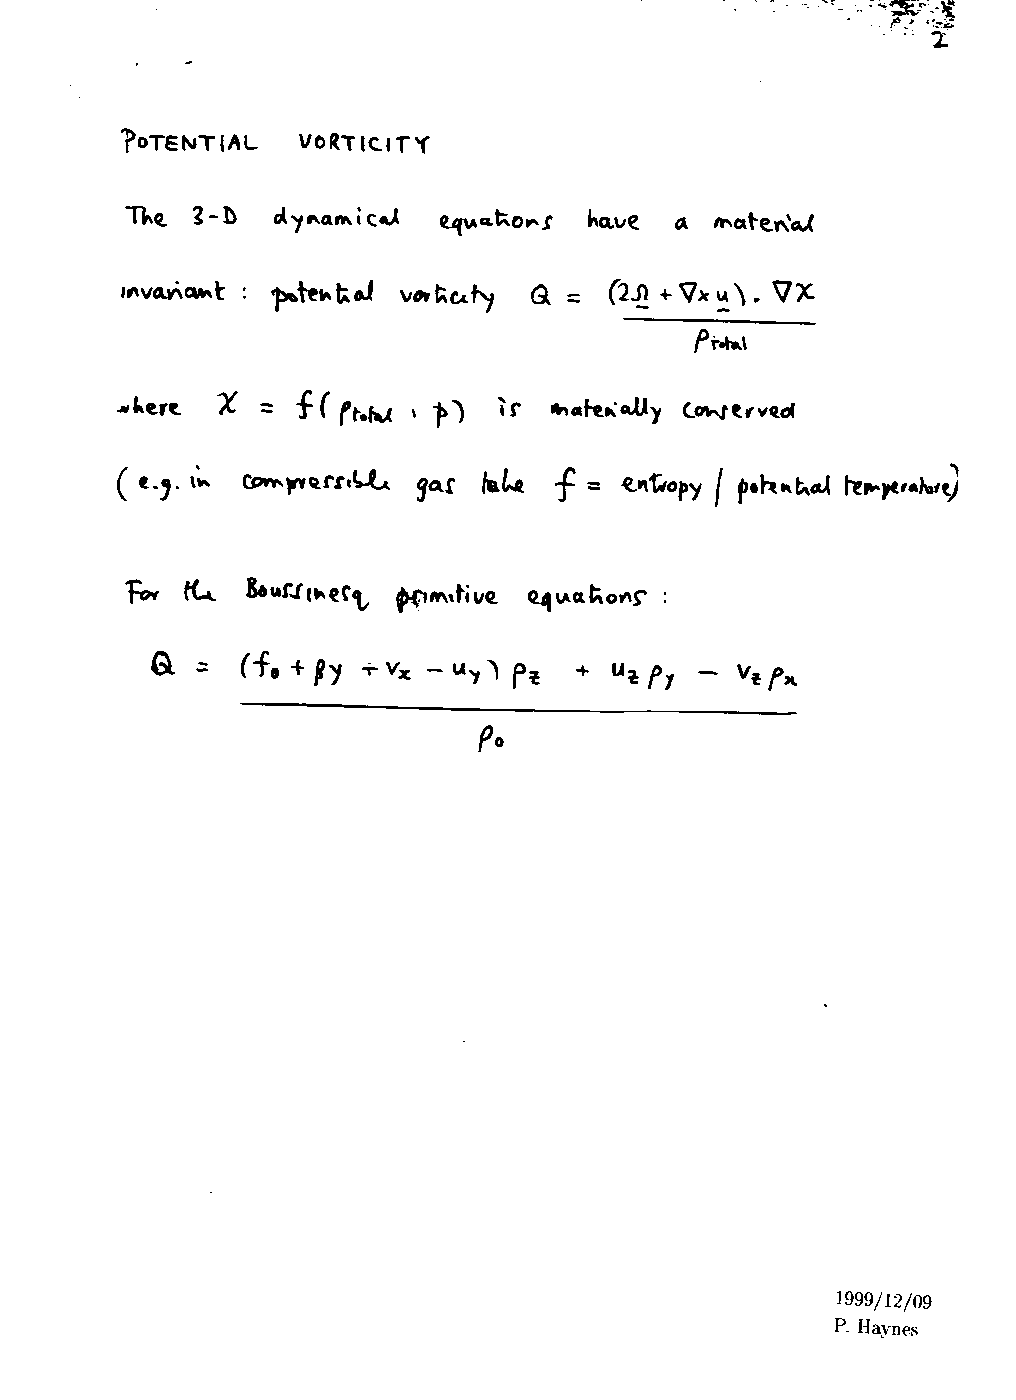 2
POTENTIAL VORTICITY
The 3-D dynamical equations have a material
invariant : potential vorticity Q = (2Ω + ∇×u). ∇χ
ρtotal
where χ = f(ρtotal, p) is materially conserved
(e.g. in compressible gas take f = entropy / potential temperature)
For the Boussinesq primitive equations :
Q = (f₀ + βy + vₓ - u_y) ρ_z + u_z ρ_y - v_z ρₓ
ρ₀
1999/12/09
P. Haynes